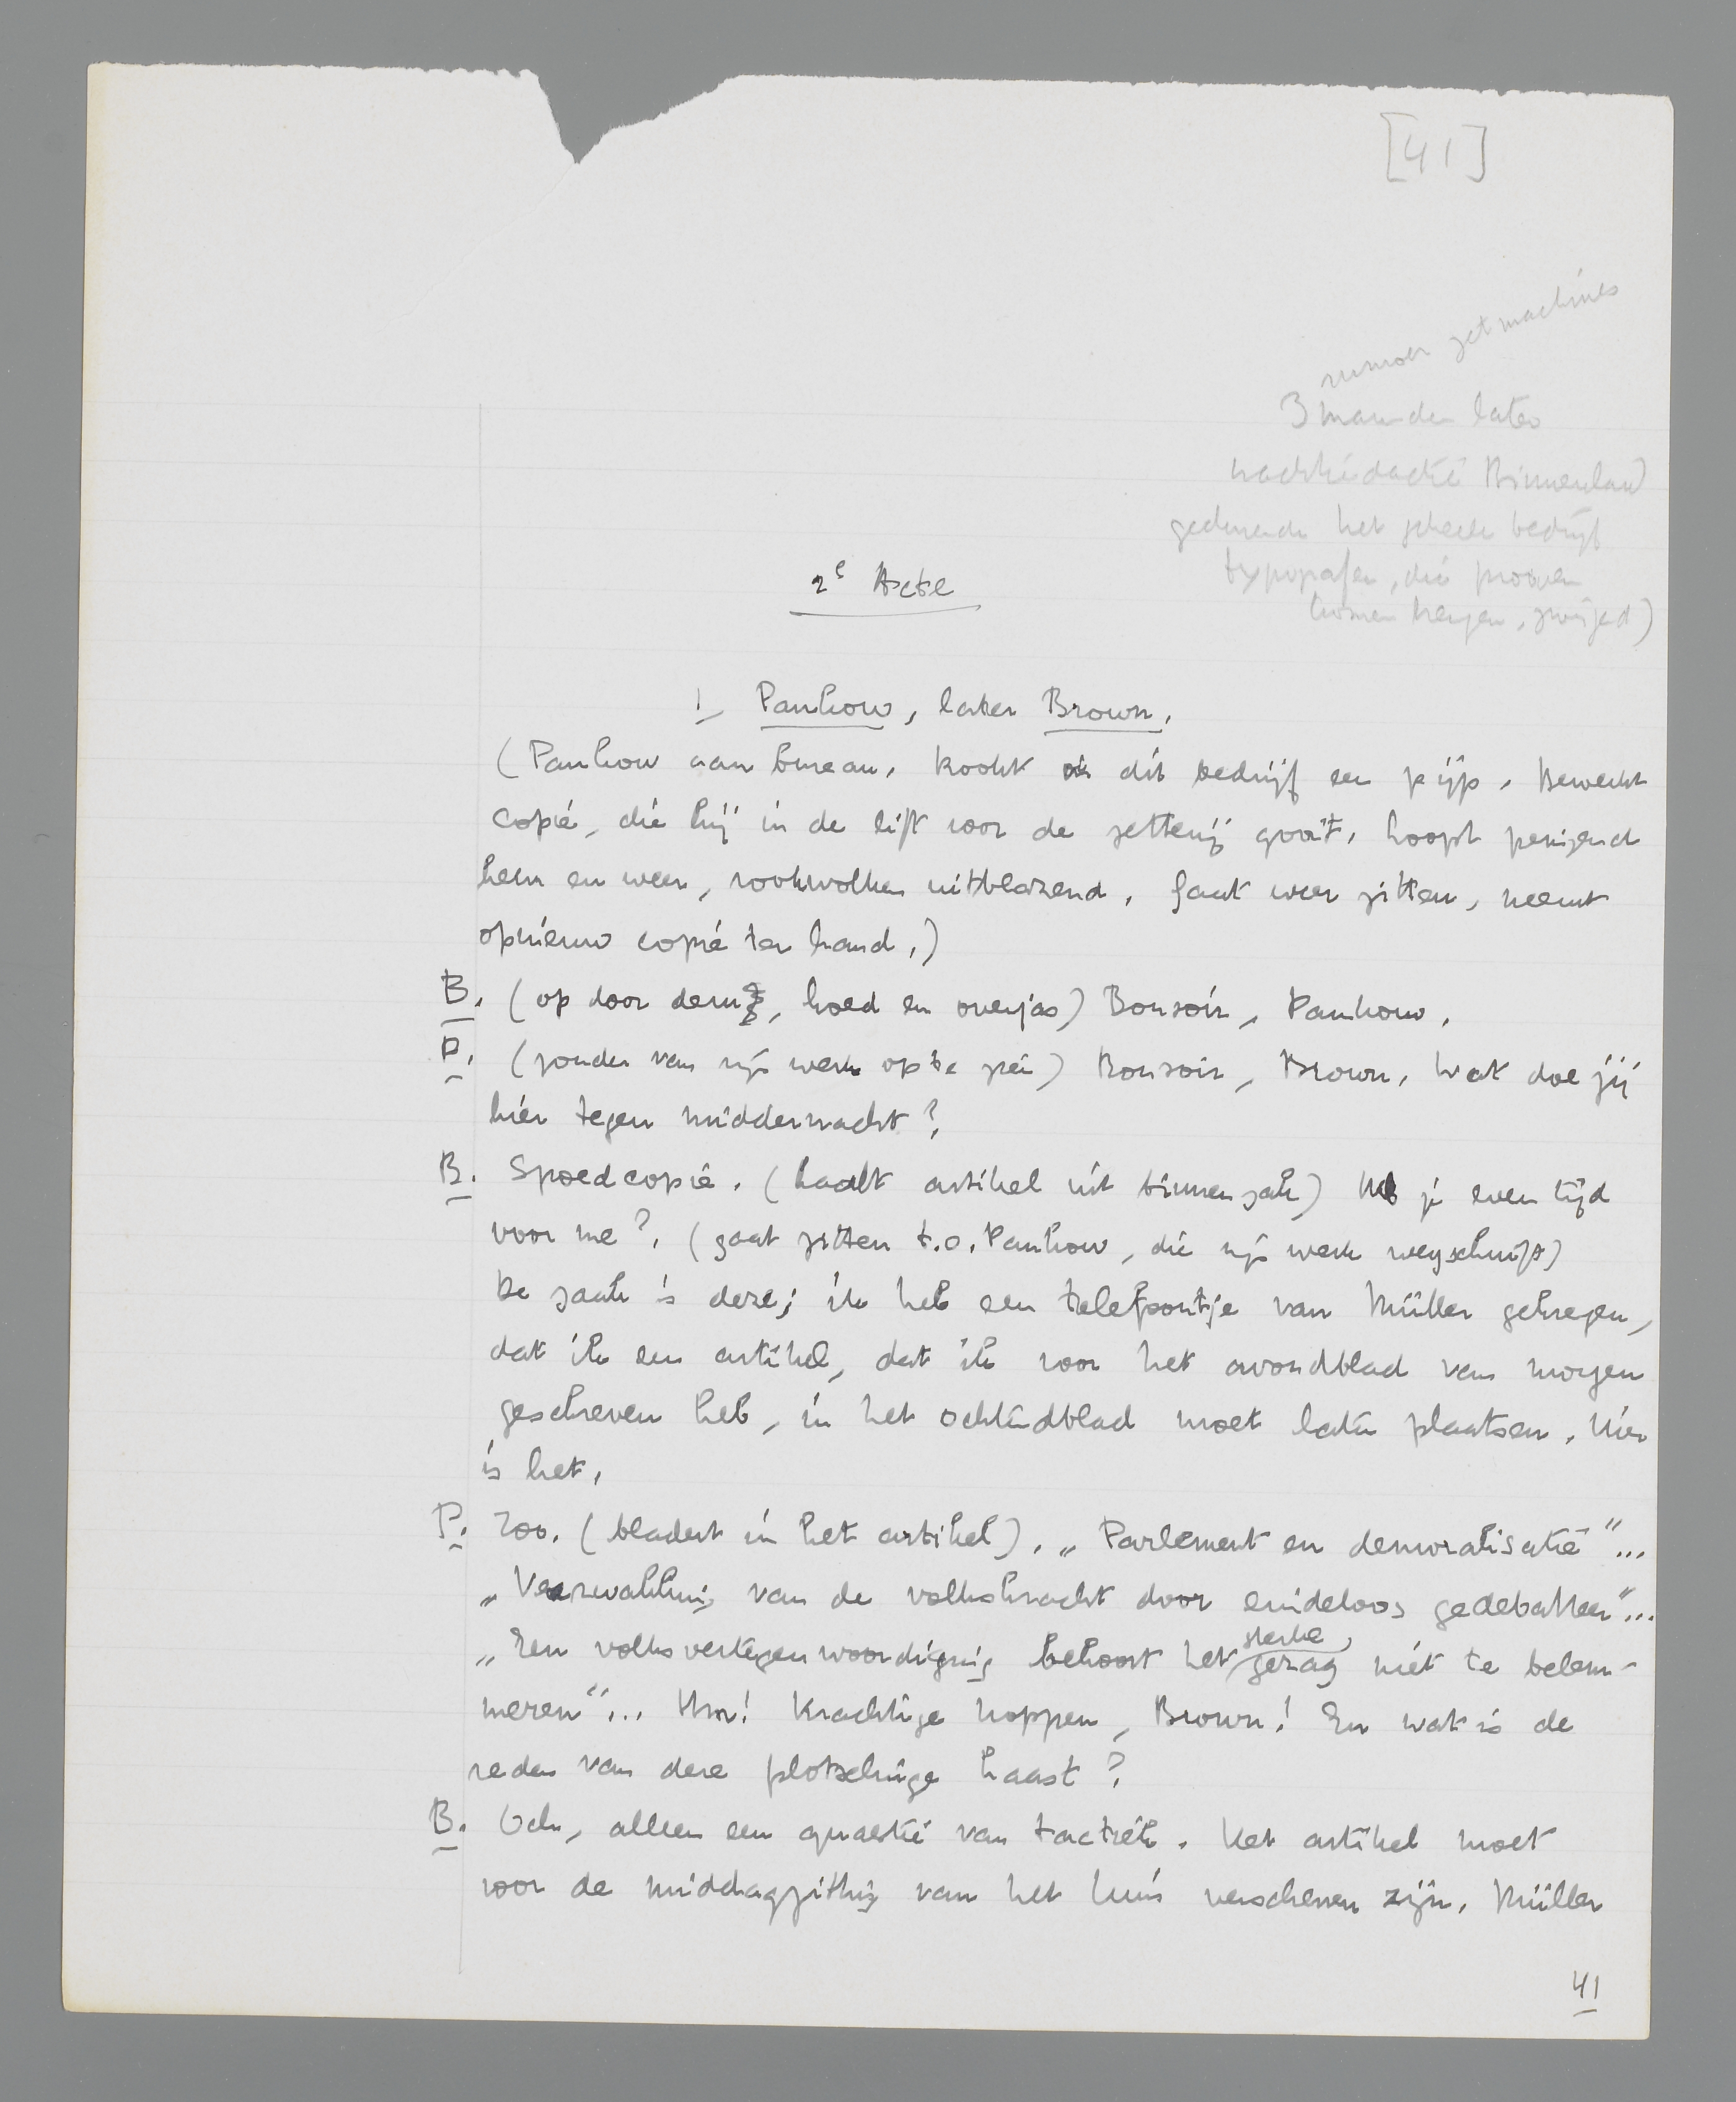 [41]
rumoer zetmachines
3 maanden later
nachtredactie Binnenland
gedurende het geheele bedrijf
typografen, die proeven
komen brengen, zwijgend)
2e Acte
1 Pankow, later Brown.
(Pankow aan bureau. Rookt dit bedrijf een pijp. Bewerkt
copie, die hij in de lift voor de zetterij gooit. Loopt peinzend
heen en weer, rookwolken uitblazend. Gaat weer zitten, neemt
opnieuw copie ter hand.)
B. (op door deur, hoed en overjas) Bonsoir, Pankow.
P. (zonder van zijn werk op te zien) Bonsoir, Brown. Wat doe jij
hier tegen middernacht?
B. Spoedcopie. (haalt artikel uit binnenzak) Heb je even tijd
voor me? (gaat zitten t.o. Pankow, die zijn werk wegschuift)
De zaak is deze; ik heb een telefoontje van Müller gekregen,
dat ik een artikel, dat ik voor het avondblad van morgen
geschreven heb, in het ochtendblad moet laten plaatsen. Hier
is het.
P. Zoo. (bladert in het artikel). „Parlement en demoralisatie"...
„Verzwakking van de volkskracht door eindeloos gedebatteer"...
„Een volksvertegenwoordiging behoort het sterke gezag niet te belem-
meren"... Hm! Krachtige koppen, Brown! En wat is de
reden van deze plotselinge haast?
B. Och, alleen een quaestie van tactiek. Het artikel moet
voor de middagzitting van het huis verschenen zijn. Müller
41